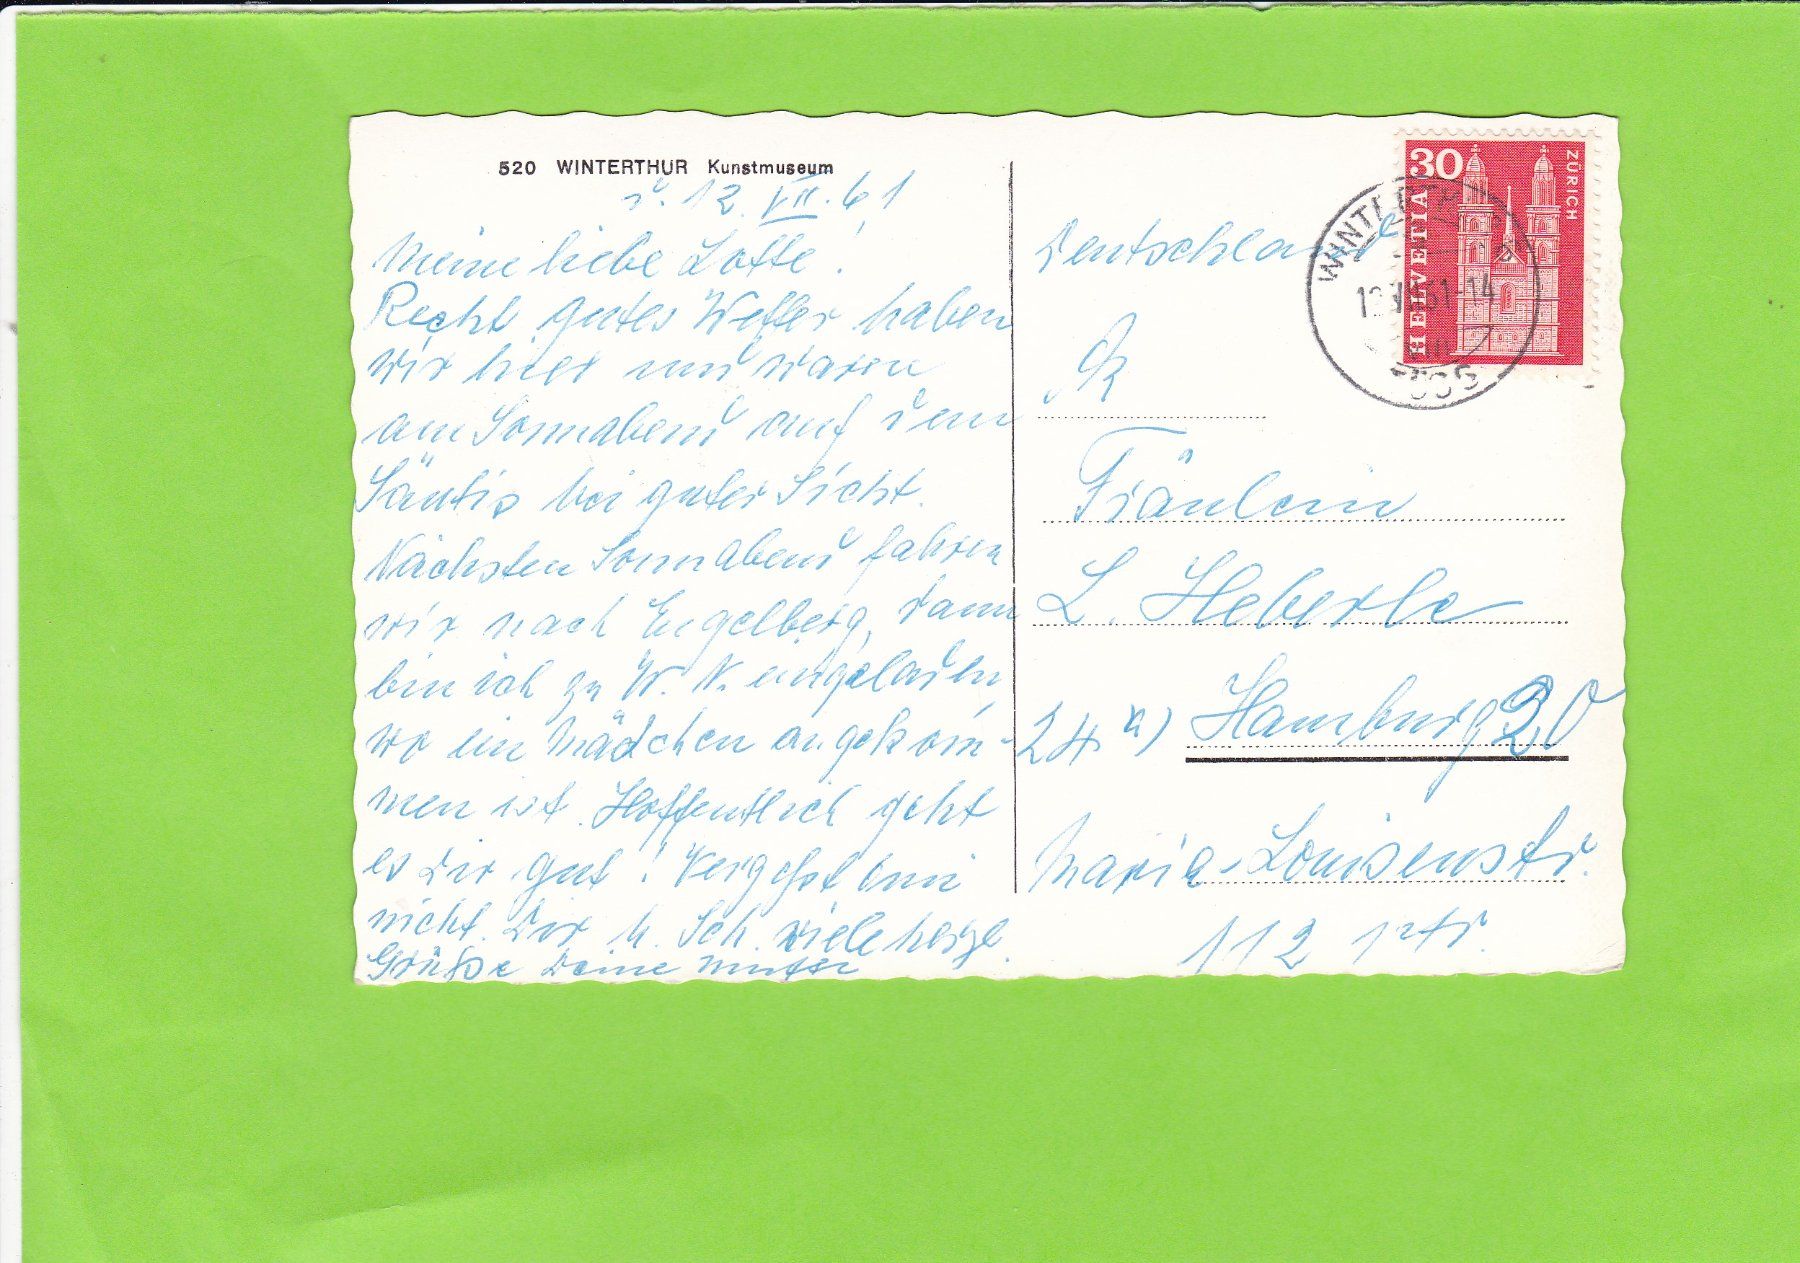 520 WINTERTHUR Kunstmuseum
d. 12. VII. 61
Meine liebe Lotte!
Recht gutes Wetter haben
wir hier und waren
am Sonnabend auf dem
Säntis bei guter Sicht.
Nächsten Sonnabend fahren
wir nach Engelberg, dann
bin ich zu W. N. eingeladen,
wo ein Mädchen angekom-
men ist. Hoffentlich geht
es Dir gut! Vergeßt mir
nicht. Dir u. Sch. viele herzl.
Grüße Deine Mutter
30
HELVETIA
ZÜRICH
WINTERTHUR
Deutschland
Fräulein
L. Heberle
24 a) Hamburg 20
Maria-Louisenstr.
112 ptr.